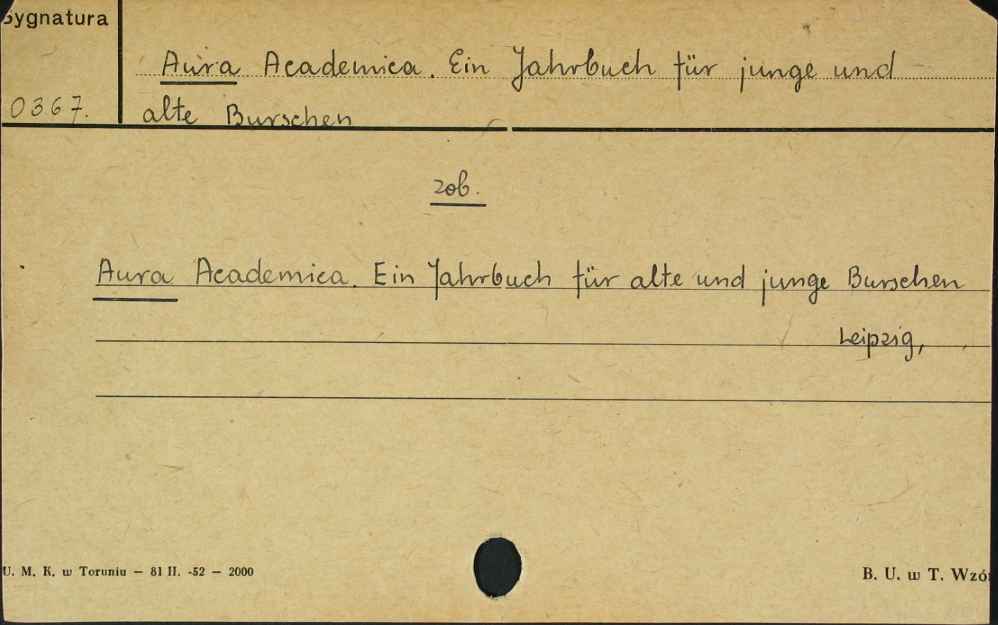 Sygnatura
0367.
Aura Academica. Ein Jahrbuch für junge und
alte Burschen
zob.
Aura Academica. Ein Jahrbuch für alte und junge Burschen
Leipzig,
U. M. K. w Toruniu — 81 II. -52 — 2000
B. U. w T. Wzór